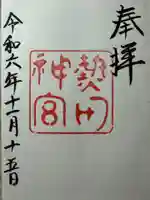 奉拝
熱田神宮
令和六年十一月十五日